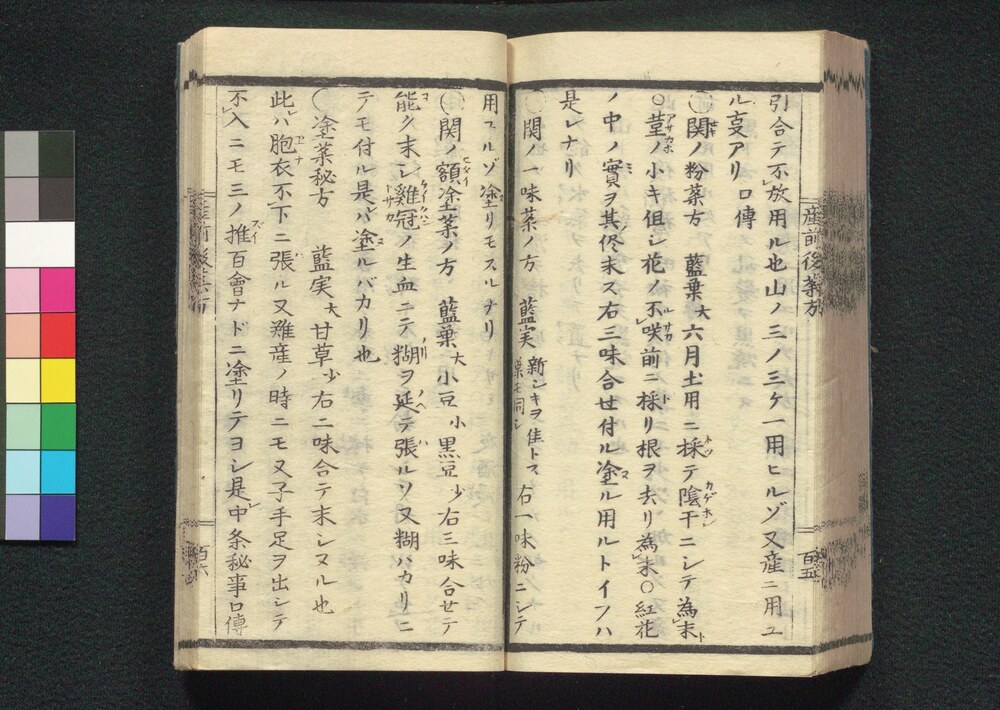 産前後薬方
引合テ不放用ル也山ノ三ノ三ケ一用ヒルゾ又産ニ用ユ
ル叓アリ口傳
〇関ノ粉薬方 藍葉大六月土用ニ採テ陰干ニシテ為末
〇莖ノ小キ但シ花ノ不咲前ニ採リ根ヲ去リ為末〇紅花
ノ中ノ實ヲ其侭末ス右三味合せ付ル塗ル用ルトイフハ
是レナリ
〇関ノ一味薬ノ方 藍実 新シキヲ佳トス 葉モ同シ 右一味粉ニシテ
用ユルゾ塗リモスルナリ
〇関ノ額塗薬ノ方 藍葉大小豆小黒豆少右三味合せテ
能ク末シ雞冠ノ生血ニテ糊ヲ延テ張ルソ又糊ハカリニ
テモ付ル是ハ塗ルバカリ也
〇塗薬秘方 藍実大甘草少右二味合テ末シヌル也
此ハ胞衣不下ニ張ル又難産ノ時ニモ又子手足ヲ出シテ
不入ニモ三ノ推百會ナドニ塗リテヨシ是中条秘事口傳
百六